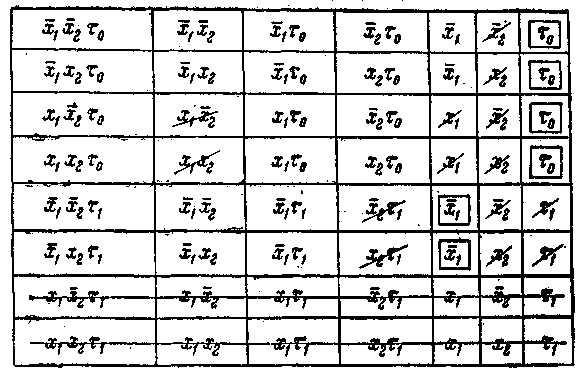 x̄₁ x̄₂ τ₀ x̄₁ x̄₂ x̄₁ τ₀ x̄₂ τ₀ x̄₁ x̄₂ τ₀
x̄₁ x₂ τ₀ x̄₁ x₂ x̄₁ τ₀ x₂ τ₀ x̄₁ x₂ τ₀
x₁ x̄₂ τ₀ x₁ x̄₂ x₁ τ₀ x̄₂ τ₀ x₁ x̄₂ τ₀
x₁ x₂ τ₀ x₁ x₂ x₁ τ₀ x₂ τ₀ x₁ x₂ τ₀
x̄₁ x̄₂ τ₁ x̄₁ x̄₂ x̄₁ τ₁ x̄₂ τ₁ x̄₁ x̄₂ τ₁
x̄₁ x₂ τ₁ x̄₁ x₂ x̄₁ τ₁ x₂ τ₁ x̄₁ x₂ τ₁
x₁ x̄₂ τ₁ x₁ x̄₂ x₁ τ₁ x̄₂ τ₁ x₁ x̄₂ τ₁
x₁ x₂ τ₁ x₁ x₂ x₁ τ₁ x₂ τ₁ x₁ x₂ τ₁